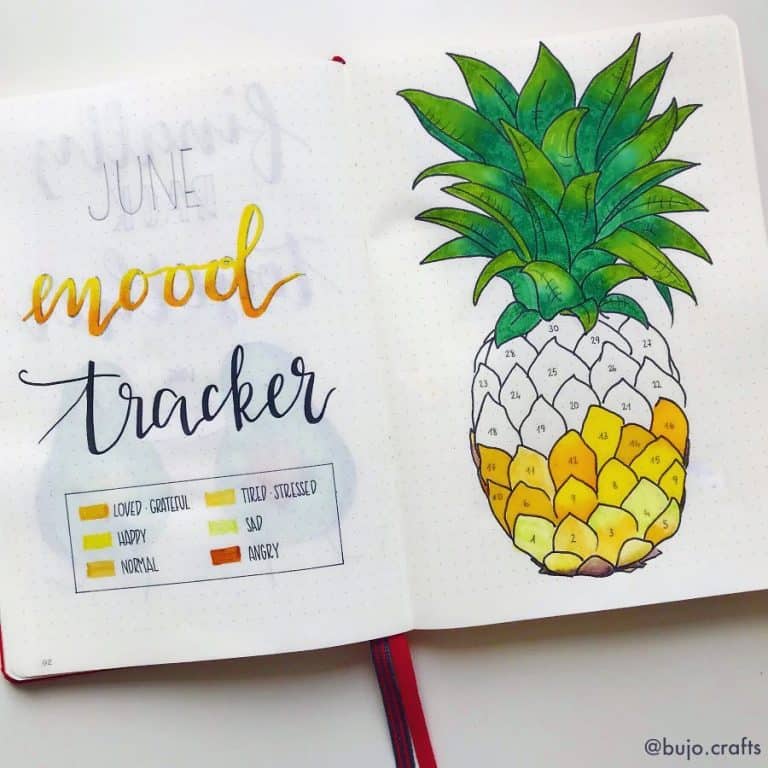 JUNE
mood
tracker
LOVED · GRATEFUL
TIRED · STRESSED
HAPPY
SAD
NORMAL
ANGRY
92
30
28 29 27
25 26
23 24 22
20 21
18 19
13 14 16
17 11 12 15
10 6 8 9
1 2 3 4 5
@bujo.crafts